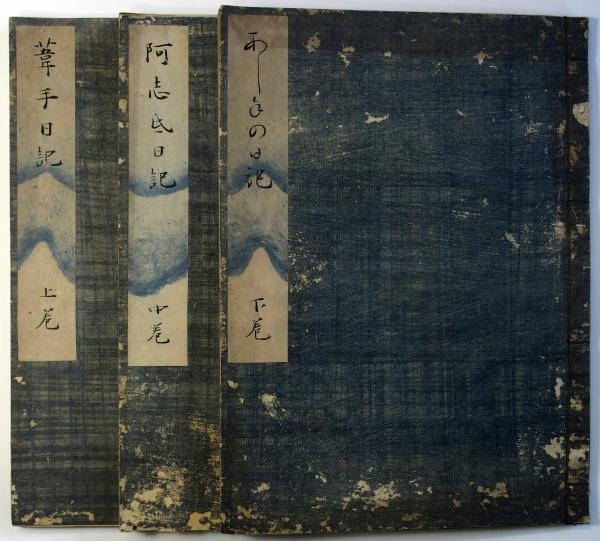 葦手日記
上巻
阿志氐日記
中巻
あし手の日記
下巻